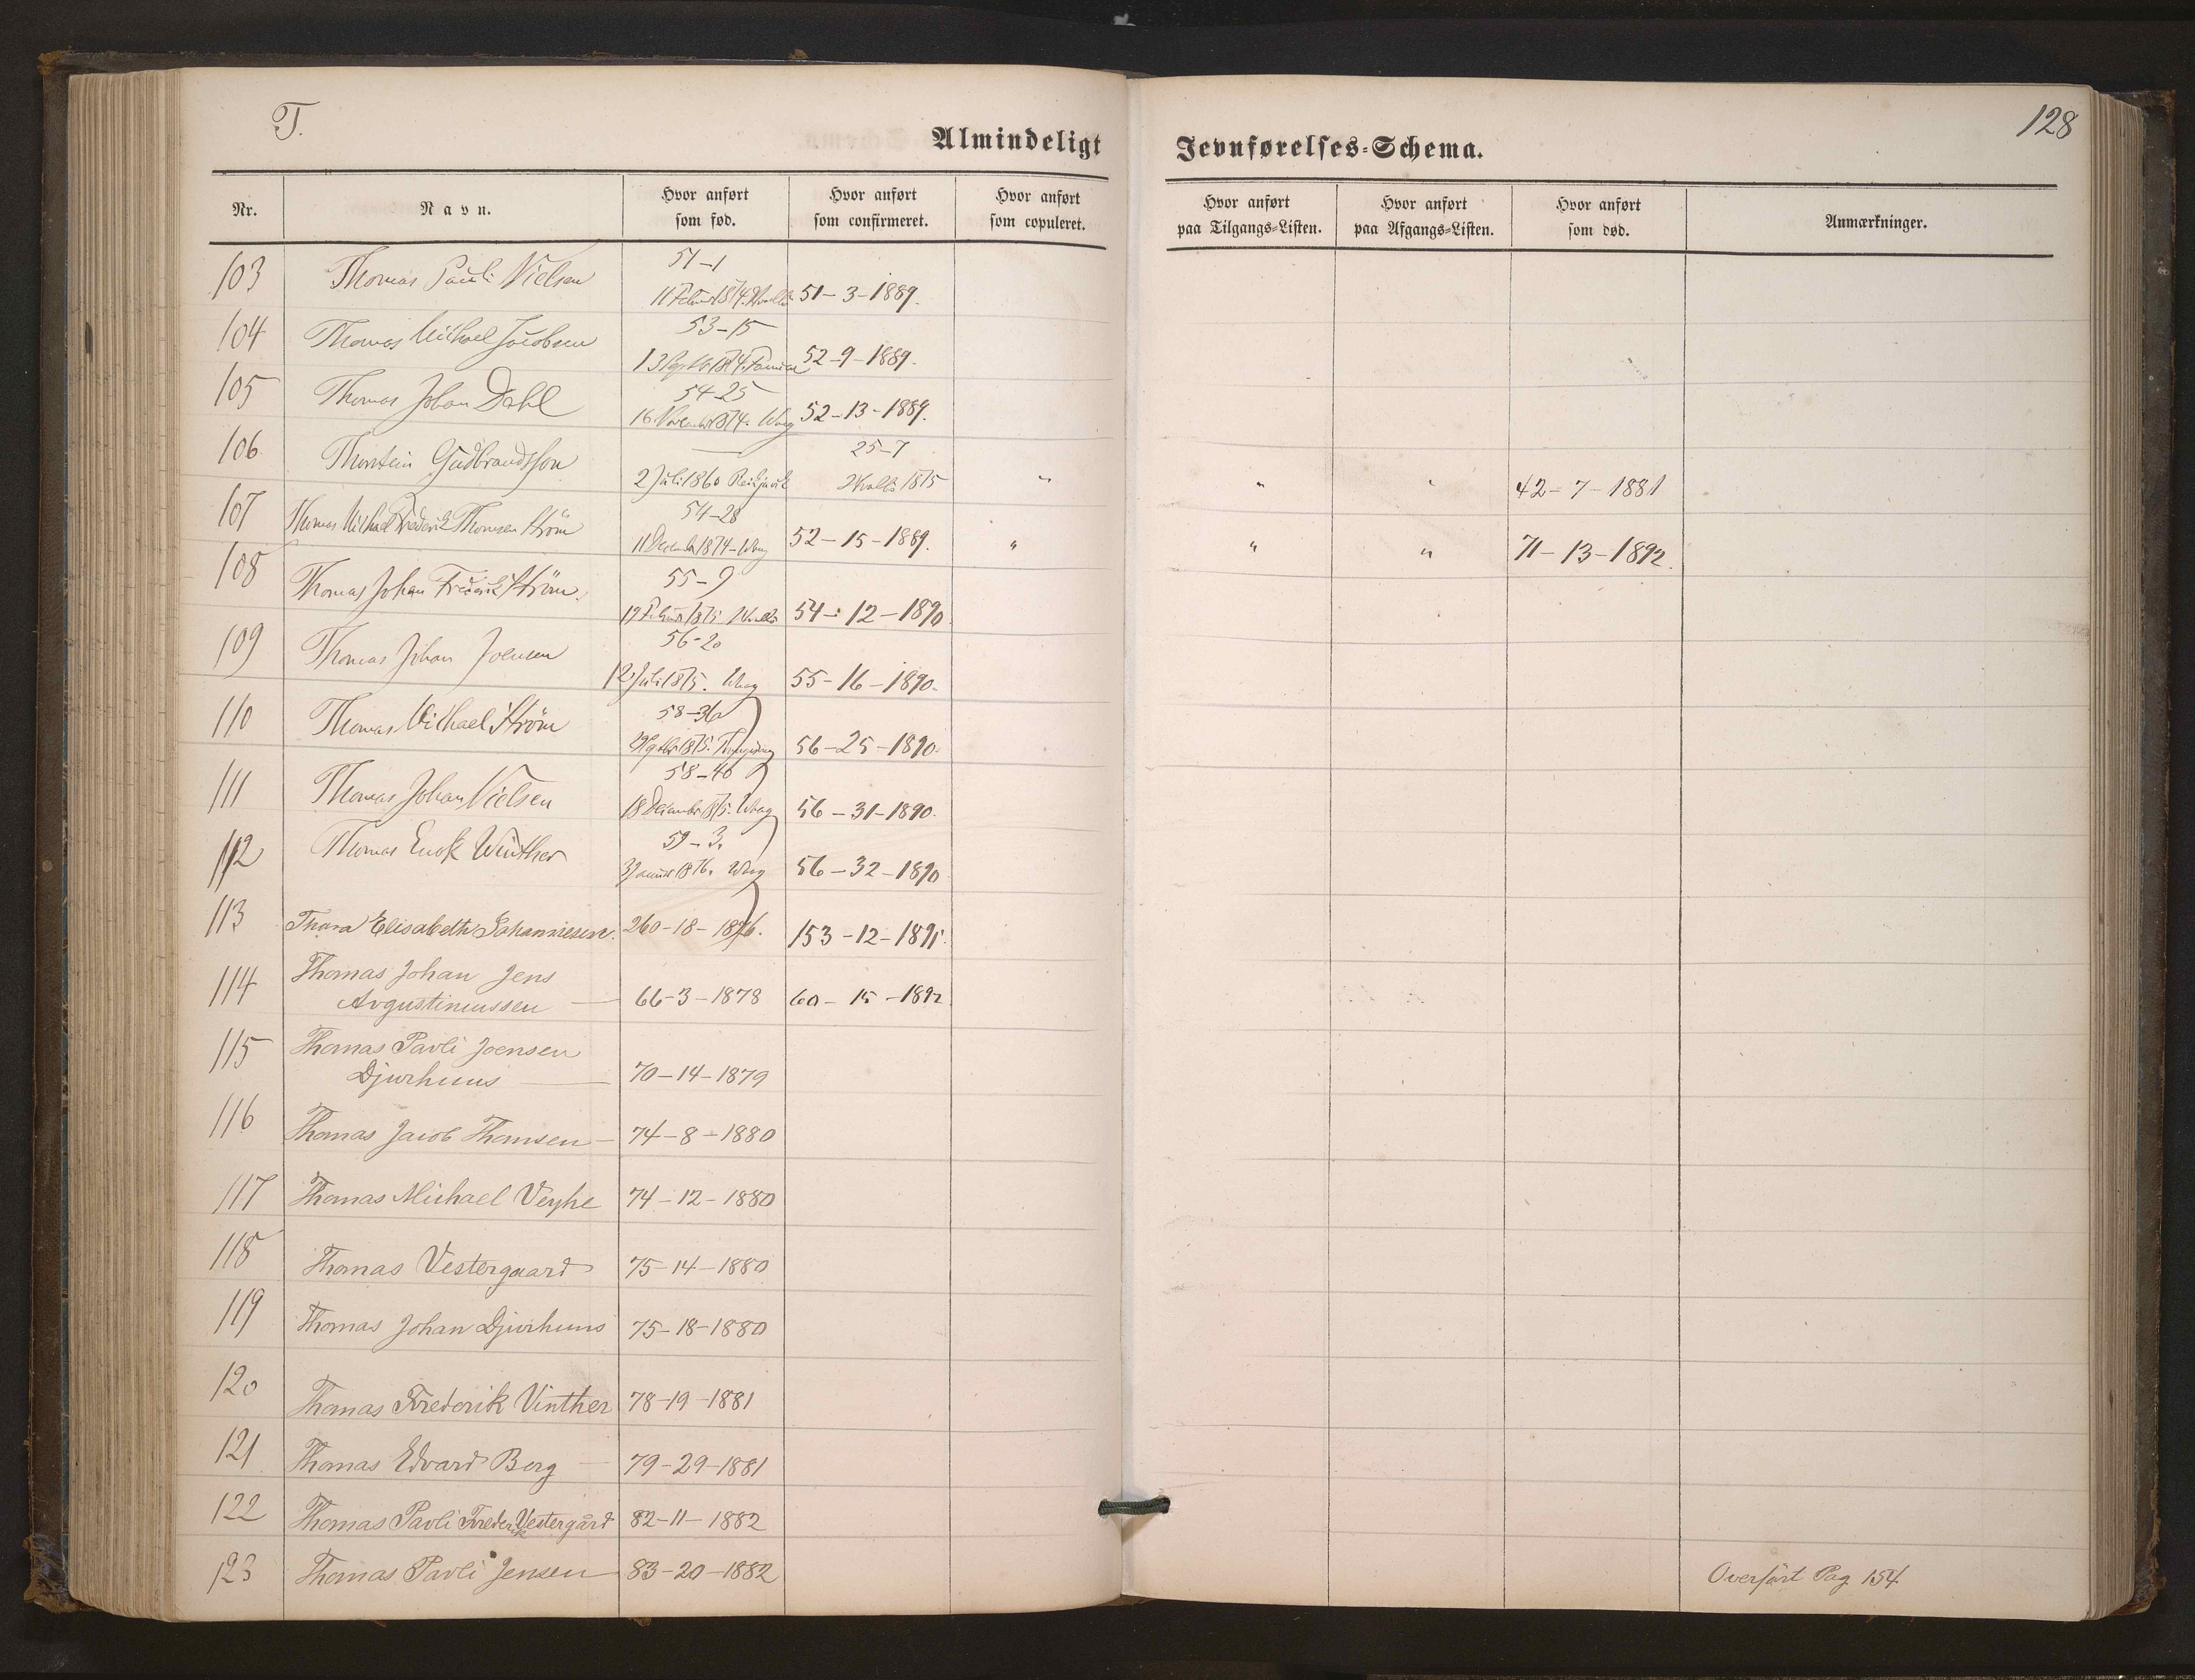 T.
128
Almindeligt Jevnførelses-Schema.
Nr. Navn. Hvor anført som fød. Hvor anført som confirmeret. Hvor anført som copuleret. Hvor anført paa Tilgangs-Listen. Hvor anført paa Afgangs-Listen. Hvor anført som død. Anmærkninger.
51-1
103 Thomas Pauli Nielsen 51-3-1889.
53-15
104 Thomas Michael Jacobsen 52-9-1889.
54-25
105 Thomas Johan Dahl 16 November 1874. Waag 52-13-1889.
25-7
106 Thorstein Gudbrandsson 2 Juli 1860 Reikjavik Hvalbø 1875 " " " 42-7-1881
54-28
107 Thomas Michael Frederik Thomsen Strøm 11 December 1874 - Waag 52-15-1889. " " " 71-13-1892.
55-9
108 Thomas Johan Frederik Strøm. 54-12-1890.
56-20
109 Thomas Johan Joensen 12 Juli 1875. Waag 55-16-1890.
58-36
110 Thomas Michael Strøm 56-25-1890.
58-40
111 Thomas Johan Nielsen 18 December 1875. Waag 56-31-1890.
59-3.
112 Thomas Enok Winther 3 Januar 1876. Waag 56-32-1890
113 Thora Elisabeth Johannesen. 260-18-1876. 153-12-1891.
Thomas Johan Jens
114 Avgustinussen — 66-3-1878 60-15-1892
115 Thomas Pavli Joensen
Djurhuus — 70-14-1879
116 Thomas Jacob Thomsen — 74-8-1880
117 Thomas Michael Veyhe 74-12-1880
118 Thomas Vestergaard 75-14-1880
119 Thomas Johan Djurhuus 75-18-1880
120 Thomas Frederik Vinther 78-19-1881
121 Thomas Edvard Berg — 79-29-1881
122 Thomas Pavli Frederik Vestergård 82-11-1882
123 Thomas Pavli Jensen — 83-20-1882 Overført Pag 154